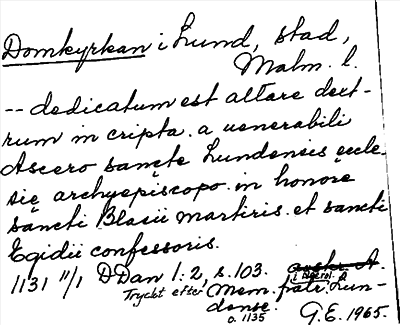 Domkyrkan i Lund, stad,
Malm. l.
-- dedicatum est altare dext-
rum in cripta. a uenerabili
Ascero sancte Lundensis eccle-
się archyepiscopo. in honore
sancti Blasii martiris. et sancti
Egidii confessoris.
1131 11/1 DDan 1:2, s. 103.
Tryckt efter Mem. fratr. Lun-
dense.
a. 1135 G.E. 1965.